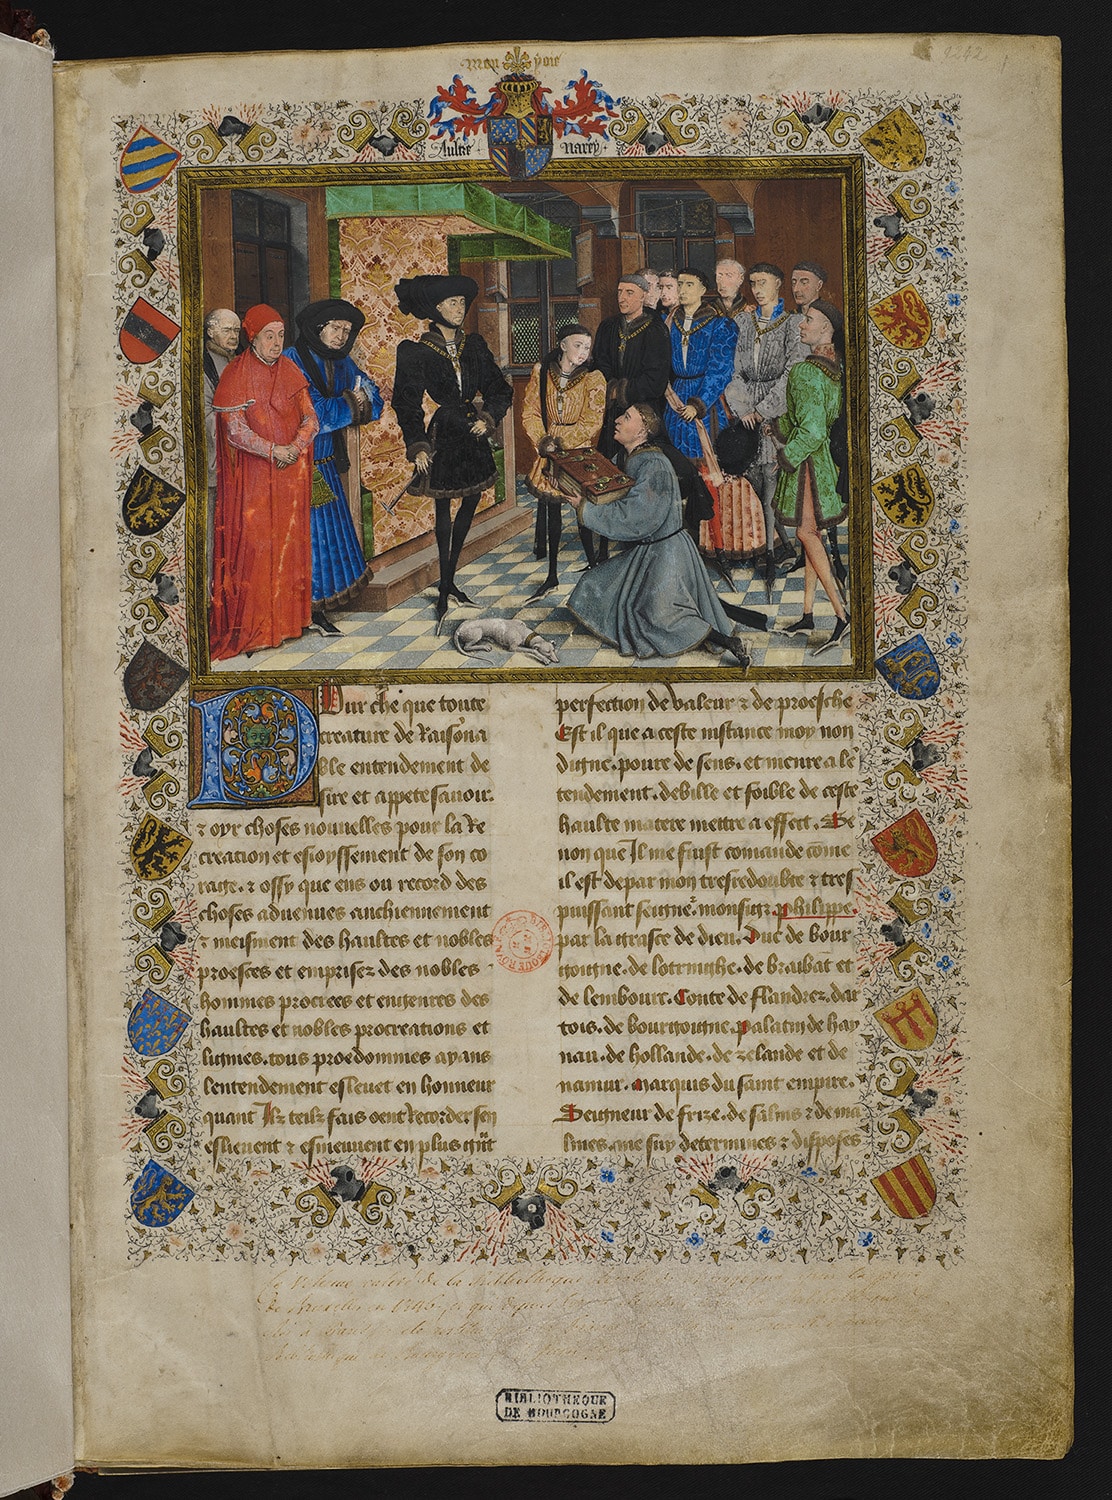 9242
Mon yoie
Aultre narey
Pour che que toute
creature de Raisona
ble entendement de
sire et appete sauoir.
⁊ oyr choses nouuelles pour la Re
creation et esioyssement de son co
rage. ⁊ ossy que ens ou record des
choses aduenues anchiennement
⁊ meisment des haultes et nobles
proesces et emprises des nobles
hommes procrees et engenres des
haultes et nobles procreations et
lignies. tous proedommes ayans
lentendement esleuet en honneur
quant Ilz teulz fais oent Recorder sen
eslieuent ⁊ esmeuuent en plus gñt
perfection de valeur ⁊ de proesche
Est il que a ceste instance moy non
digne. poure de sens. et menre a lē
tendement. debille et foible de ceste
haulte matere mettre a effect. Se
non que Il me fuist comande come
il est de par mon tresredoubte ⁊ tres
puissant seigneʳ. monsigʳ philippe.
par la grasce de dieu. Duc de bour
goigne. de lotringhe. de braibat et
de lembourc. Conte de flandrez. dar
tois. de bourgoigne. palatin de hay
nau. de hollande. de zelande et de
namur. Marquis du saint empire.
Seigneur de frize. de salins ⁊ de ma
lines. me suy determines ⁊ disposes
BIBLIOTHEQUE
DE BOURGOGNE